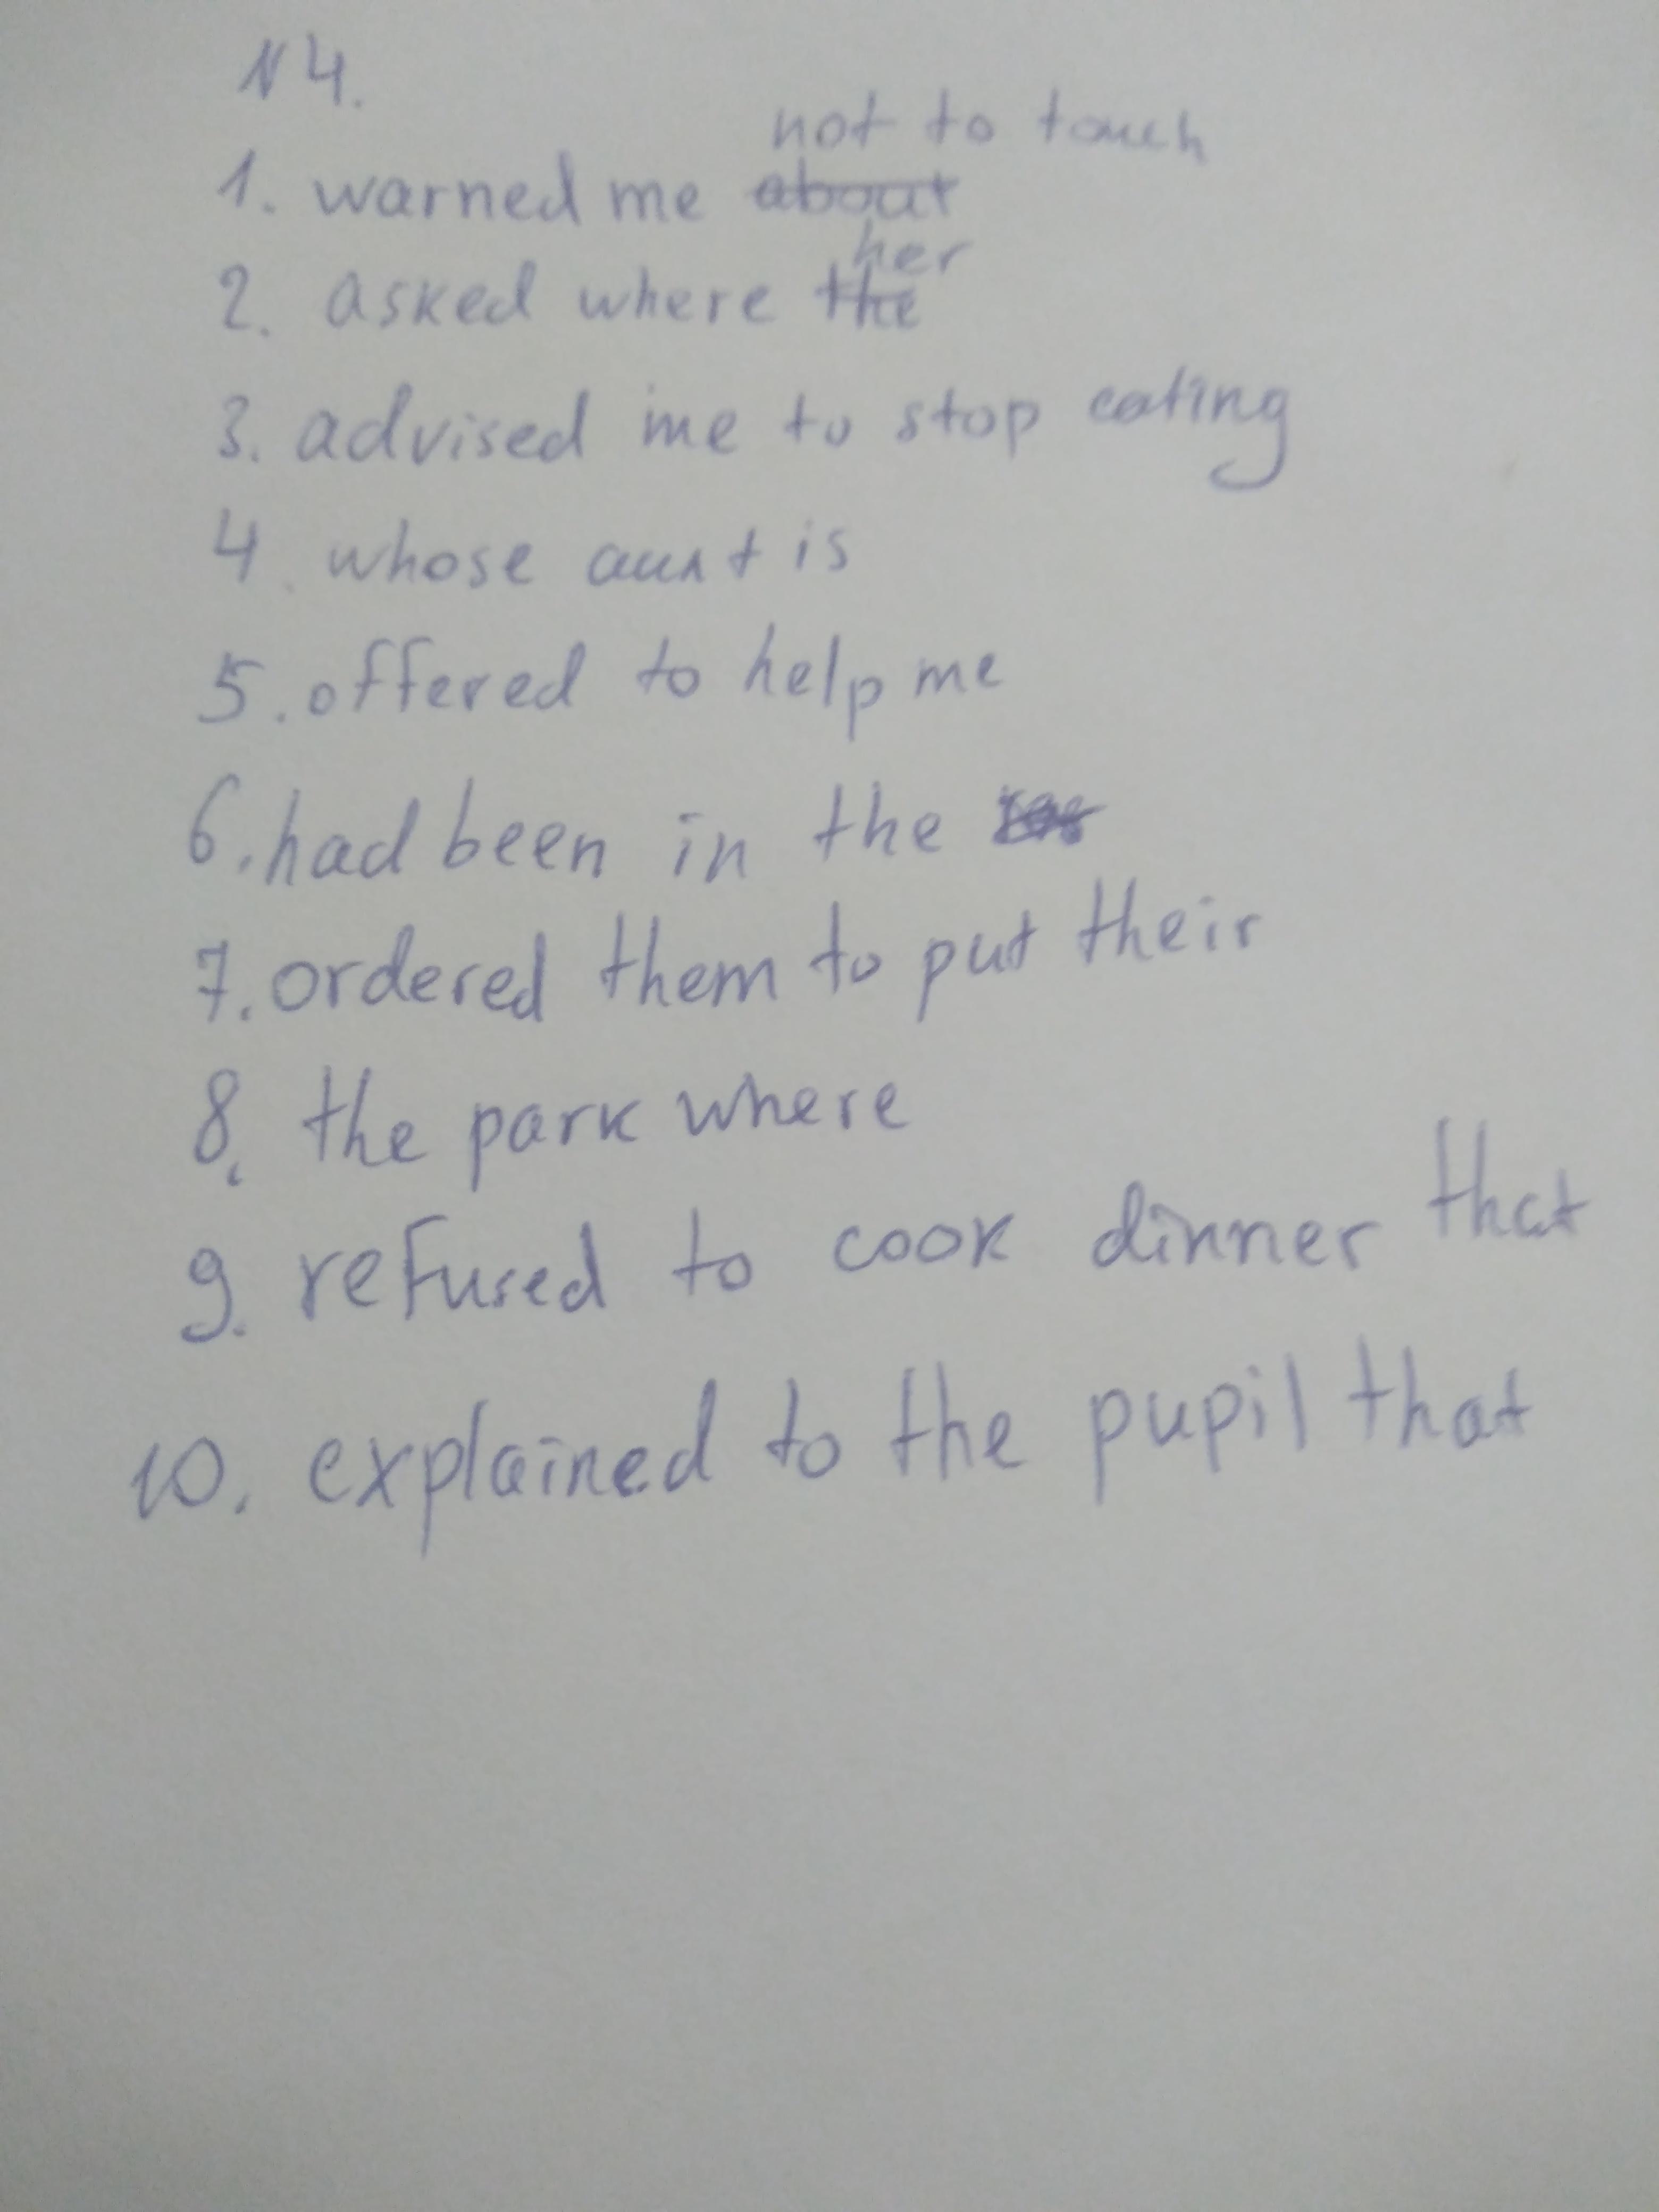 N 4.
not to touch
1. warned me about
her
2. asked where the
3. advised me to stop eating
4. whose aunt is
5. offered to help me
6. had been in the
7. ordered them to put their
8. the park where
9. refused to cook dinner that
10. explained to the pupil that